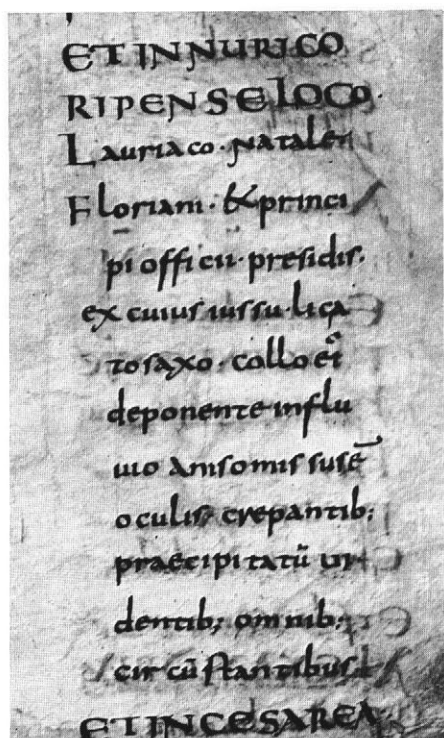 ET IN NURICO
RIPENSE LOCO·
Lauriaco· natale
Floriani· & princi
pi officii· presidis·
ex cuius iussu· liga
to saxo· collo eĩ
deponente in flu
uio anisomissusẽ
oculis crepantib;
praecipitatũ ui
dentib; omnib;
circũstantibus·
ET IN CESAREA·